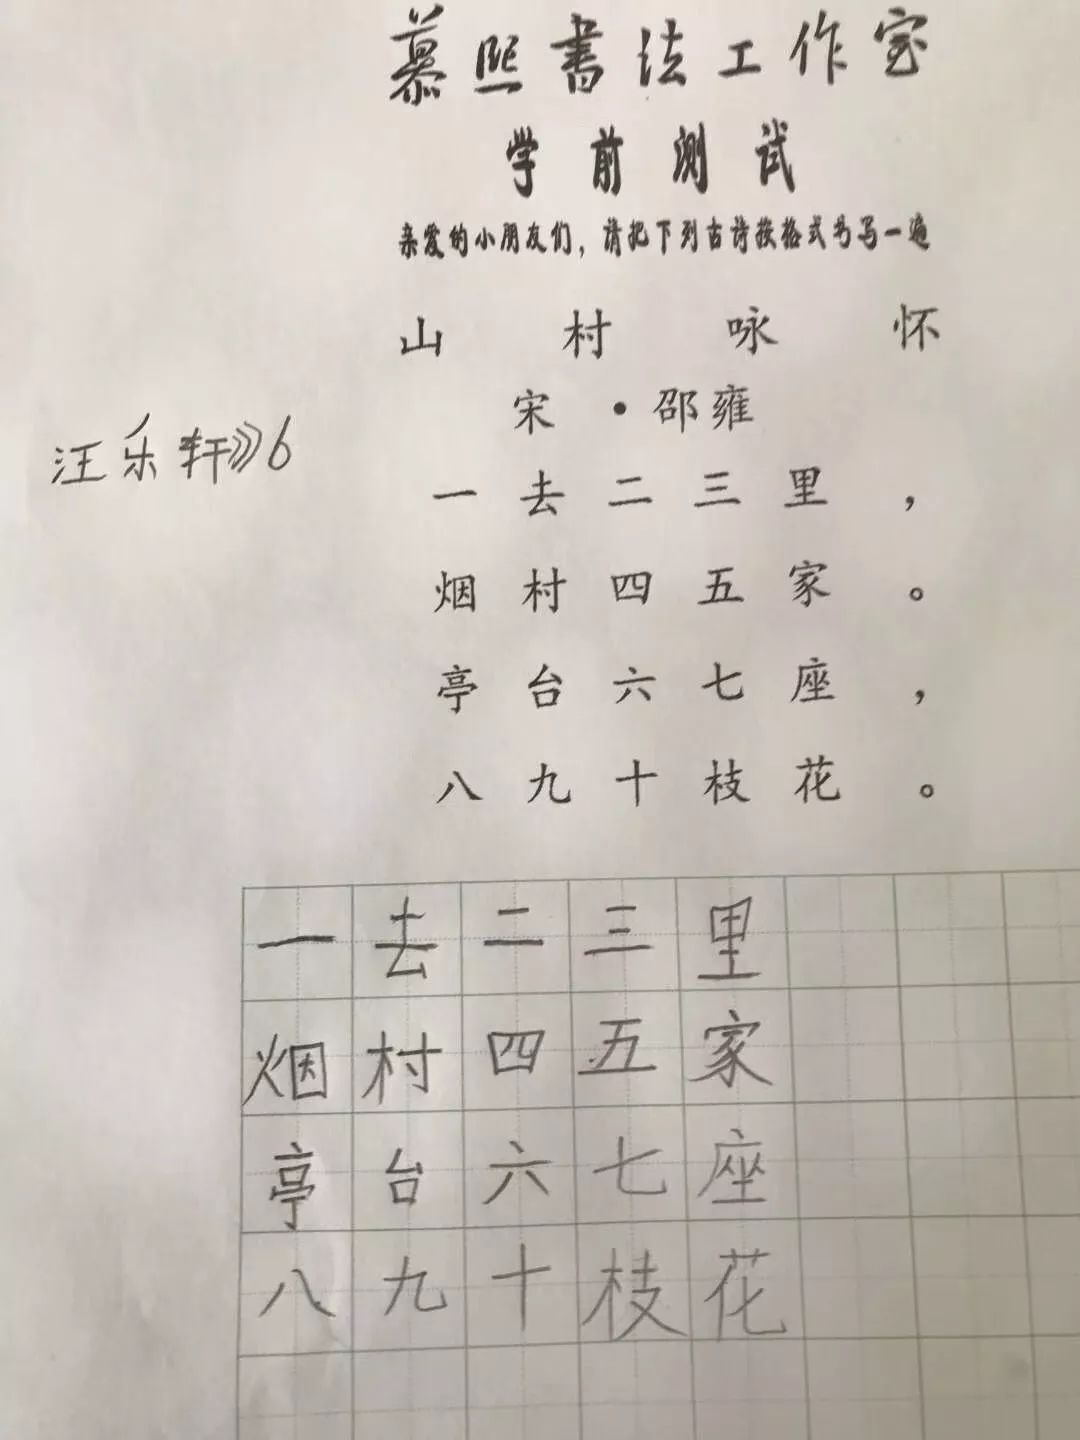 慕熙书法工作室
学前测试
亲爱的小朋友们，请把下列古诗按格式书写一遍
山村咏怀
宋·邵雍
汪乐轩》》6
一去二三里，
烟村四五家。
亭台六七座，
八九十枝花。
一去二三里
烟村四五家
亭台六七座
八九十枝花